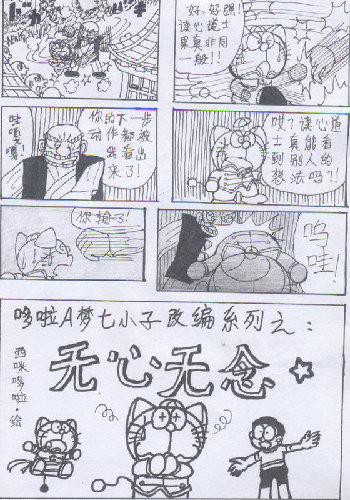 好,好强!
读心道士
果真非同
一般!!
哇噻
你的下一步
动作都被
我看出
来了!
哎?读心道
士真能看
到别人的
想法吗?!
你输了!
呜
哇!
哆啦A梦七小子改编系列之:
无心无念
西咪哆啦·绘